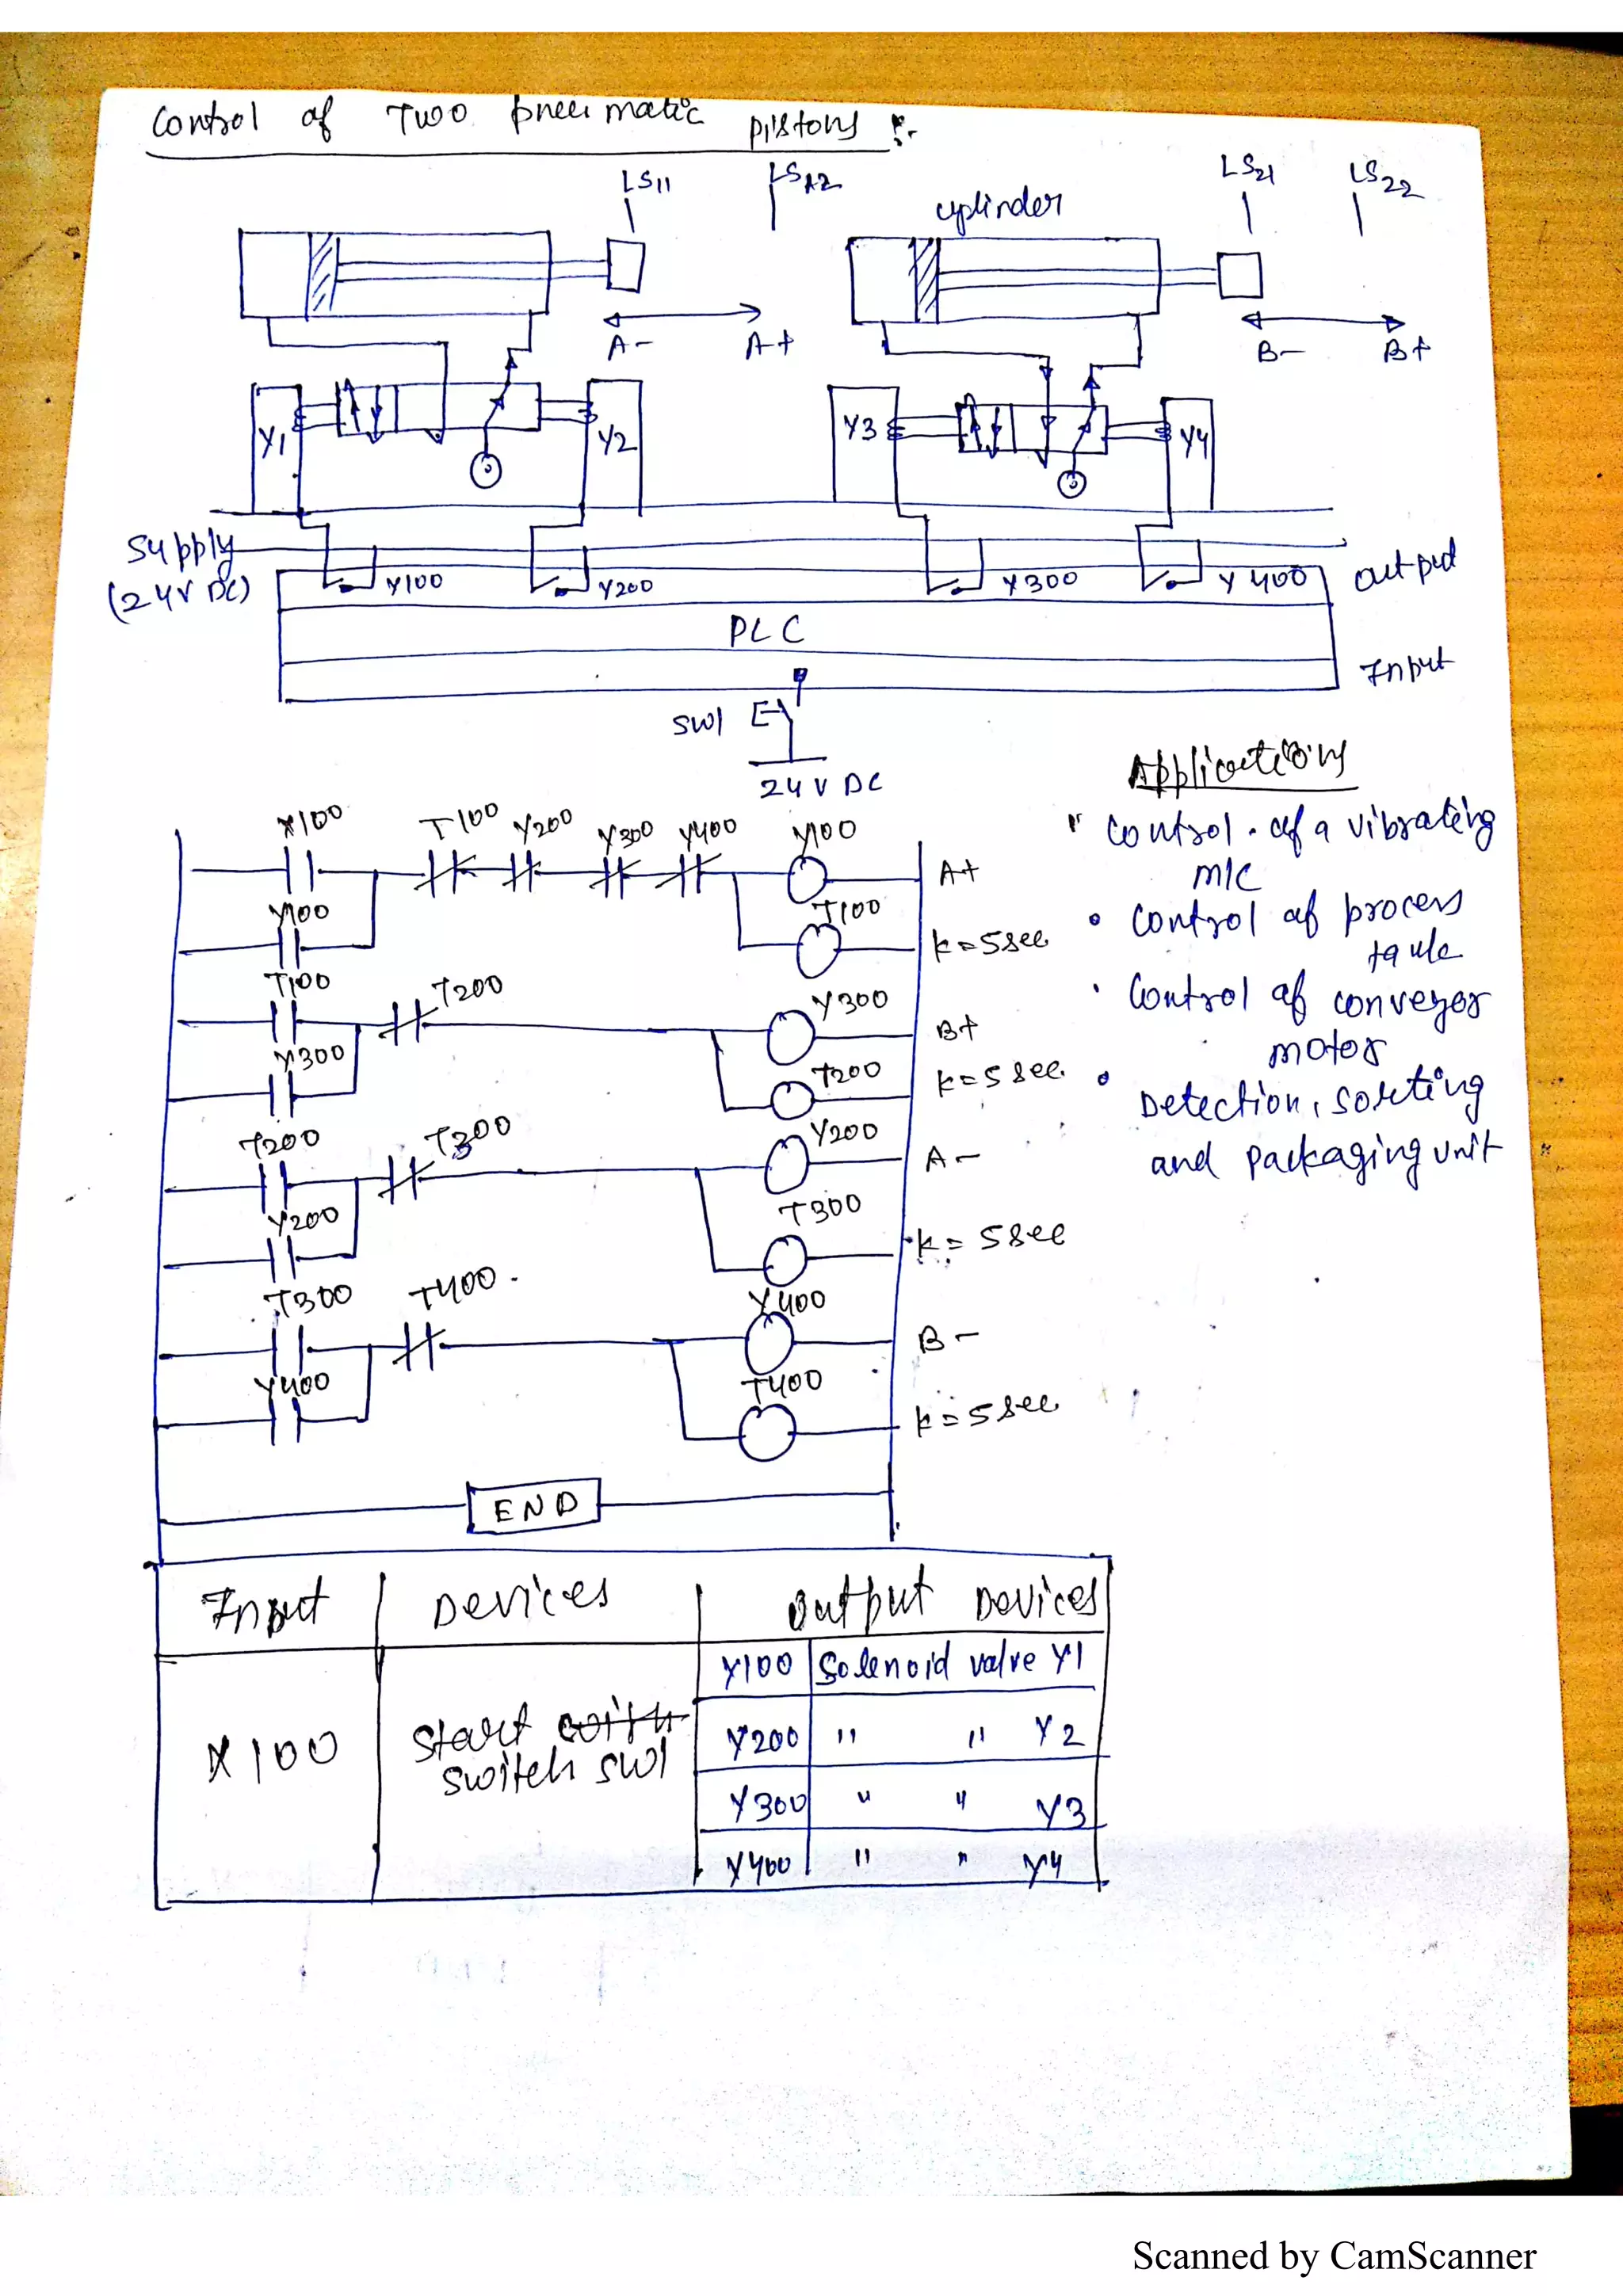 Control of Two pneumatic pistons :-
LS11 LS12 cylinder LS21 LS22
A- A+ B- B+
Y1 Y2 Y3 Y4
Supply
(24V DC)
Y100 Y200 Y300 Y400 output
PLC
Input
SW1
24 V DC
Applications
Control of a vibrating
M/C
• Control of process
• Control of conveyor
motor
• Detection, sorting
and packaging unit
X100 T100 Y200 Y300 Y400 Y100 A+
Y100 T100 k=5sec
T100 T200 Y300 B+
Y300 T200 k=5sec.
T200 T300 Y200 A-
Y200 T300 k=5sec
T300 T400. Y400 B-
Y400 T400 k=5sec
END
Input Devices Output Devices
Y100 Solenoid valve Y1
X100 Start
switch SW1
Y200 " " Y2
Y300 " " Y3
Y400 " " Y4
Scanned by CamScanner